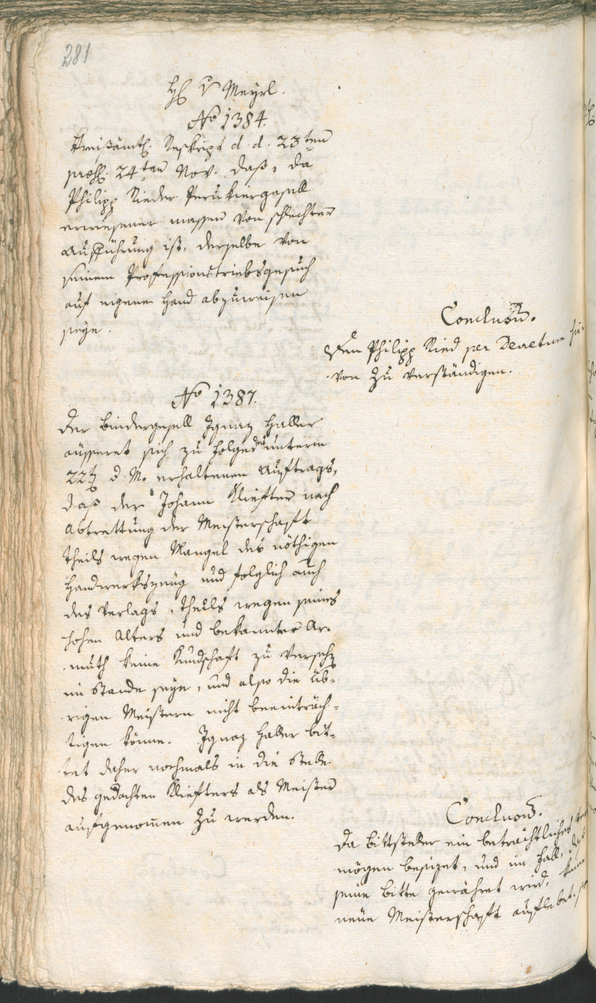 281
H. v Meyrl.
No 1384.
Kreisämtl. Reskript d. d. 23ten
präs. 24ten Nov. daß, da
Philipp Rieder Perukiergesell
erwiesener massen von schlechter
Aufführung ist, derselbe von
seinem Professionstriebsgesuch
auf eigene Hand abzuweisen
seye.
Conclusum.
Den Philipp Ried per Decretum hie-
von zu verständigen.
No 1387.
Der Bindergesell Ignaz Haller
äusseret sich zu folge des unterm
22ten d. M. erhaltenen Auftrags,
daß der Johann Kliefter nach
Abtrettung der Meisterschaft
theils wegen Mangel des nöthigen
Handwerkszeug und folglich auch
des Verlags, theils wegen seines
hohen Alters und bekannter Ar-
muth keine Kundschaft zu versehen
im Stande seye, und also die üb-
rigen Meistern nicht beeinträch-
tigen könne. Ignaz Haller bit-
tet daher nochmals in die Stelle
des gedachten Kliefters als Meister
aufgenommen zu werden.
Conclusum.
Da Bittsteller ein beträchtliches Ver-
mögen besizet, und im Fall, daß
seine Bitte gewähret wird, keine
neue Meisterschaft auflebet,